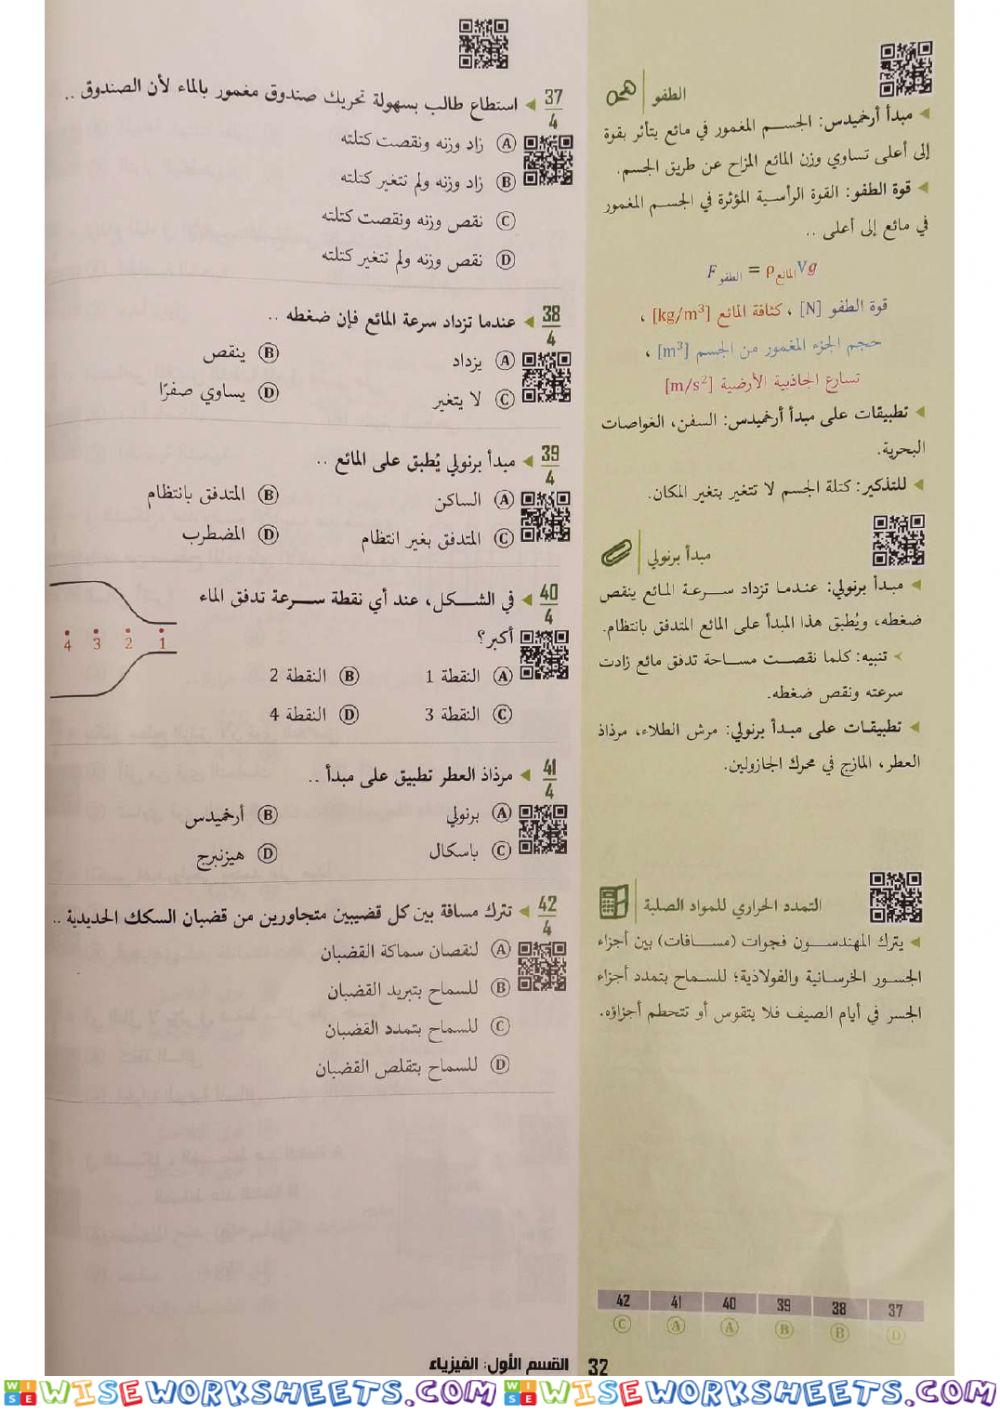 الطفو
مبدأ أرخميدس: الجسم المغمور في مائع يتأثر بقوة
إلى أعلى تساوي وزن المائع المزاح عن طريق الجسم.
قوة الطفو: القوة الرأسية المؤثرة في الجسم المغمور
في مائع إلى أعلى ..
F الطفو = ρ المائع Vg
قوة الطفو [N] ، كثافة المائع [kg/m³] ،
حجم الجزء المغمور من الجسم [m³] ،
تسارع الجاذبية الأرضية [m/s²]
تطبيقات على مبدأ أرخميدس: السفن، الغواصات
البحرية.
للتذكير: كتلة الجسم لا تتغير بتغير المكان.
مبدأ برنولي
مبدأ برنولي: عندما تزداد سرعة المائع ينقص
ضغطه، ويُطبق هذا المبدأ على المائع المتدفق بانتظام.
تنبيه: كلما نقصت مساحة تدفق مائع زادت
سرعته ونقص ضغطه.
تطبيقات على مبدأ برنولي: مرش الطلاء، مرذاذ
العطر، المازج في محرك الجازولين.
التمدد الحراري للمواد الصلبة
يترك المهندسون فجوات (مسافات) بين أجزاء
الجسور الخرسانية والفولاذية؛ للسماح بتمدد أجزاء
الجسر في أيام الصيف فلا يتقوس أو تتحطم أجزاؤه.
37 38 39 40 41 42
D B B A A C
37/4 استطاع طالب بسهولة تحريك صندوق مغمور بالماء لأن الصندوق ..
A زاد وزنه ونقصت كتلته
B زاد وزنه ولم تتغير كتلته
C نقص وزنه ونقصت كتلته
D نقص وزنه ولم تتغير كتلته
38/4 عندما تزداد سرعة المائع فإن ضغطه ..
A يزداد B ينقص
C لا يتغير D يساوي صفرًا
39/4 مبدأ برنولي يُطبق على المائع ..
A الساكن B المتدفق بانتظام
C المتدفق بغير انتظام D المضطرب
40/4 في الشكل، عند أي نقطة سرعة تدفق الماء
أكبر؟
4 3 2 1
A النقطة 1 B النقطة 2
C النقطة 3 D النقطة 4
41/4 مرذاذ العطر تطبيق على مبدأ ..
A برنولي B أرخميدس
C باسكال D هيزنبرج
42/4 تترك مسافة بين كل قضيبين متجاورين من قضبان السكك الحديدية ..
A لنقصان سماكة القضبان
B للسماح بتبريد القضبان
C للسماح بتمدد القضبان
D للسماح بتقلص القضبان
32 القسم الأول: الفيزياء
WISEWORKSHEETS.COM WISEWORKSHEETS.COM